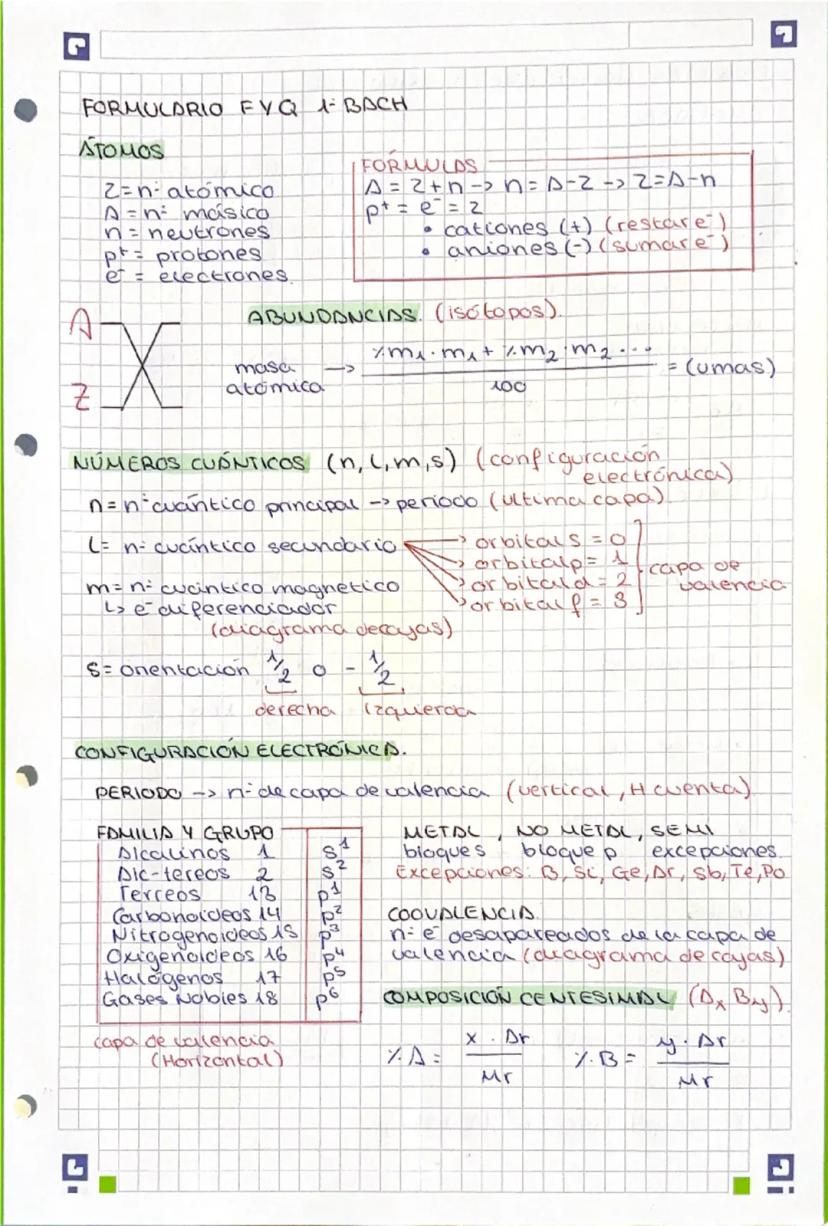 FORMULARIO FYQ 1º BACH
ÁTOMOS
Z = nº atómico
A = nº másico
n = neutrones
p⁺ = protones
e⁻ = electrones
FÓRMULAS
A = Z + n -> n = A - Z -> Z = A - n
p⁺ = e⁻ = Z
• cationes (+) (restar e⁻)
• aniones (-) (sumar e⁻)
A
Z
ABUNDANCIAS. (isótopos).
masa atómica -> %m₁ · m₁ + %m₂ · m₂ ... / 100 = (umas)
NÚMEROS CUÁNTICOS (n, l, m, s) (configuración electrónica)
n = nº cuántico principal -> período (última capa)
l = nº cuántico secundario
orbital s = 0
orbital p = 1
orbital d = 2
orbital f = 3
capa de valencia
m = nº cuántico magnetico
↳ e⁻ diferenciador
(diagrama de cajas)
s = orientación 1/2 o - 1/2
derecha izquierda
CONFIGURACIÓN ELECTRÓNICA.
PERIODO -> nº de capa de valencia (vertical, H cuenta)
FAMILIA Y GRUPO
Alcalinos 1 s¹
Alc-tereos 2 s²
Terreos 13 p¹
Carbonoideos 14 p²
Nitrogenoideos 15 p³
Oxigenoideos 16 p⁴
Halógenos 17 p⁵
Gases Nobles 18 p⁶
capa de valencia
(Horizontal)
METAL, NO METAL, SEMI
bloque s bloque p excepciones
Excepciones: B, Si, Ge, Ar, Sb, Te, Po
COOVALENCIA.
nº e⁻ desapareados de la capa de
valencia (diagrama de cajas)
COMPOSICIÓN CENTESIMAL (AₓBᵧ).
%A = x · Ar / Mr %B = y · Ar / Mr